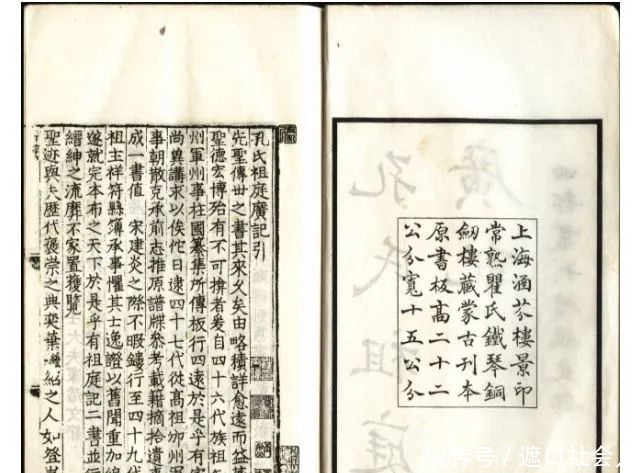 上海涵芬樓景印
常熟瞿氏鐵琴銅
劍樓藏蒙古刊本
原書板高二十二
公分寬十五公分
孔氏祖庭廣記引
先聖傳世之書其來久矣由略積詳愈遠而益
聖德宏博殆有不可揜者爰自四十六代族祖
州軍州事柱國纂集所傳板行四遠於是乎有
尚冀講求以俟佗日逮四十七代從高祖邠州軍
事朝散克承前志推原譜牒參考載籍摘拾遺
成一書值 宋建炎之際不暇鏤行至四十九代
祖主祥符縣簿承事懼其亡逸證以舊聞重加
遂就完本布之天下於是乎有祖庭記二書並
縉紳之流靡不家置獲覽
聖迹與夫歷代褒崇之典奕葉繼紹之人如登
传号/遮口社会